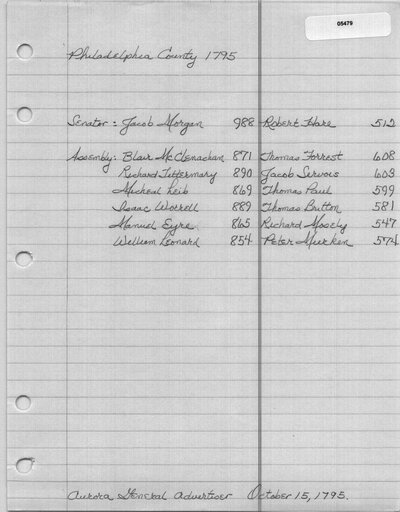 05479
Philadelphia County 1795
Senator: Jacob Morgan 988 Robert Hare 512
Assembly: Blair McClenachan 871 Thomas Forrest 608
Richard Tittermary 890 Jacob Servoss 603
Micheal Leib 869 Thomas Paul 599
Isaac Worrell 889 Thomas Britton 581
Manuel Eyre 865 Richard Mosely 547
William Leonard 854 Peter Muerken 574
Aurora General Advertiser October 15, 1795.